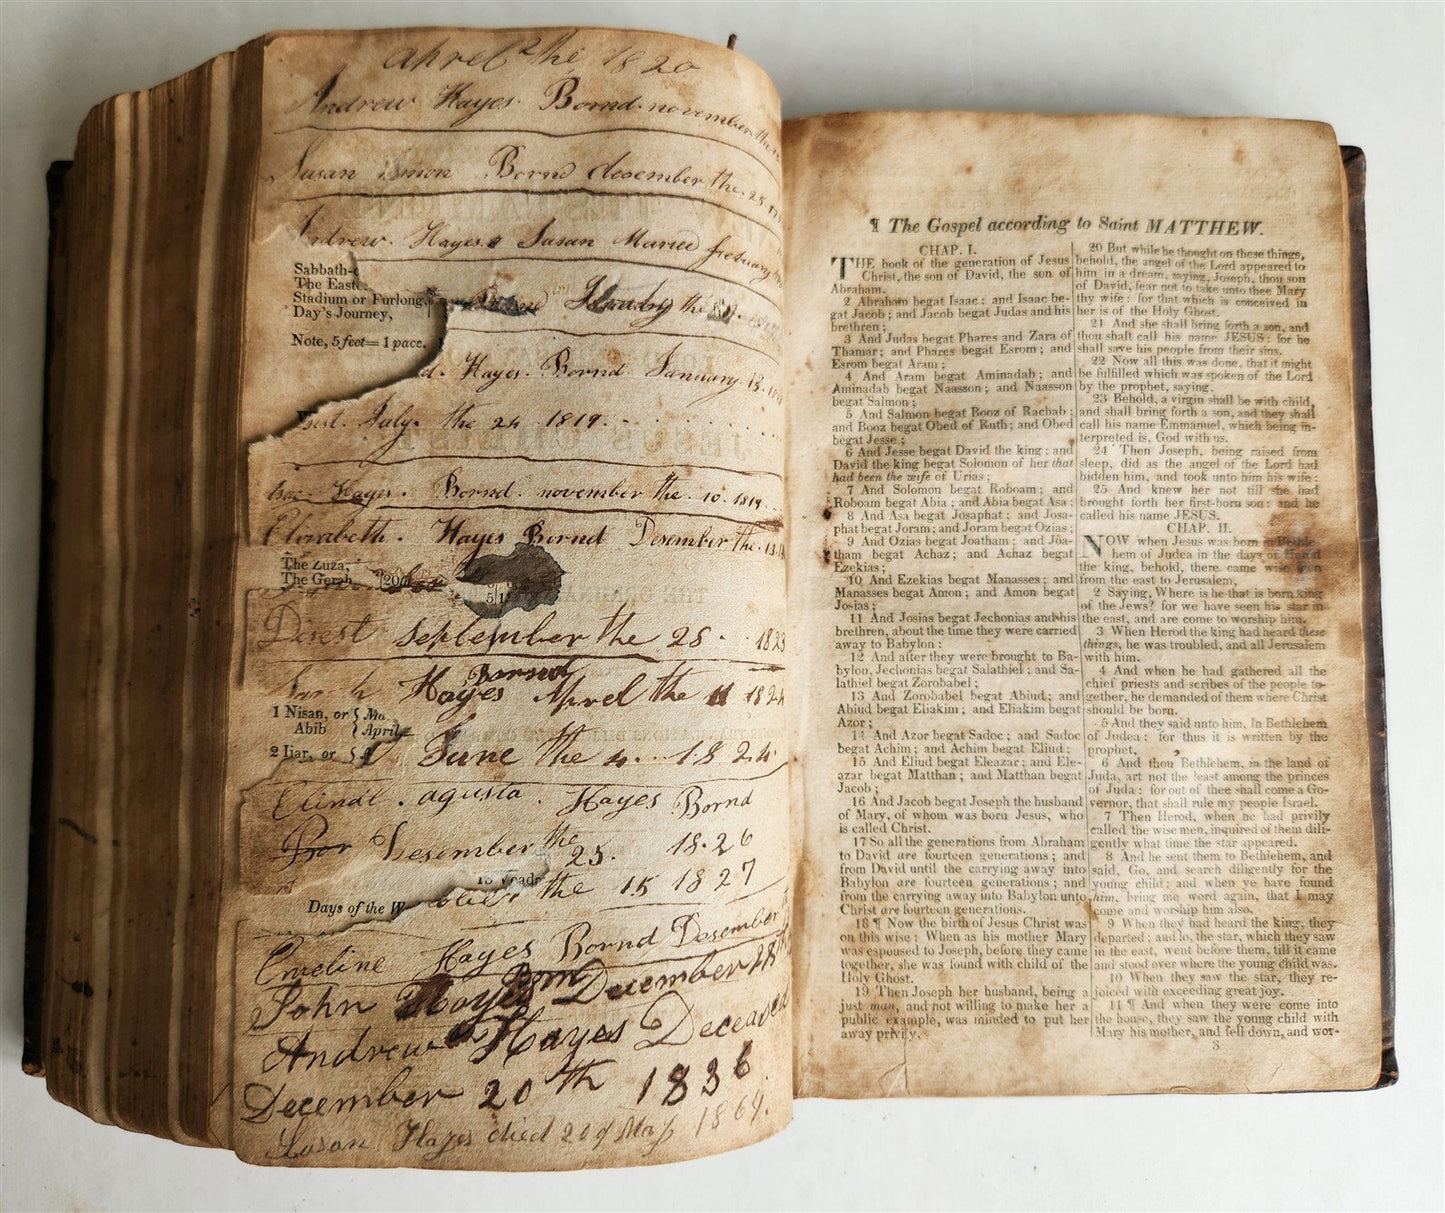 Aprel the 1820
Andrew Hayes. Bornd. november the
Susan Bornd december the. 25.
Andrew. Hayes & Susan Maried febuary
Sabbath-
The Easte
Stadium or Furlong,
Day's Journey,
the
Note, 5 feet = 1 pace.
Hayes. Bornd. January. 13.
July. the 24 1819.
Hayes. Bornd. november the. 10. 1819
Elizabeth. Hayes Bornd Desember the. 13.
The Zuza,
The Gerah,
Desest september the 28 1823
Bornd
Sarah Hayes Aprel the 11 1824
1 Nisan, or { Ma
Abib { April
2 Iiar, or
June the 4. 1824
Elinal. agusta. Hayes Bornd
Bor Desember the 25. 18.26
the 15 1827
Days of the W
Emeline Hayes Bornd Desember
Born
John Hayes December 28
Andrew Hayes Deceased
December 20th 1836
Susan Hayes died 20 of May 1869.
¶ The Gospel according to Saint MATTHEW.
CHAP. I.
THE book of the generation of Jesus
Christ, the son of David, the son of
Abraham.
2 Abraham begat Isaac; and Isaac be-
gat Jacob; and Jacob begat Judas and his
brethren;
3 And Judas begat Phares and Zara of
Thamar; and Phares begat Esrom; and
Esrom begat Aram;
4 And Aram begat Aminadab; and
Aminadab begat Naasson; and Naasson
begat Salmon;
5 And Salmon begat Booz of Rachab;
and Booz begat Obed of Ruth; and Obed
begat Jesse;
6 And Jesse begat David the king; and
David the king begat Solomon of her that
had been the wife of Urias;
7 And Solomon begat Roboam; and
Roboam begat Abia; and Abia begat Asa;
8 And Asa begat Josaphat; and Josa-
phat begat Joram; and Joram begat Ozias;
9 And Ozias begat Joatham; and Joa-
tham begat Achaz; and Achaz begat
Ezekias;
10 And Ezekias begat Manasses; and
Manasses begat Amon; and Amon begat
Josias;
11 And Josias begat Jechonias and his
brethren, about the time they were carried
away to Babylon:
12 And after they were brought to Ba-
bylon, Jechonias begat Salathiel; and Sa-
lathiel begat Zorobabel;
13 And Zorobabel begat Abiud; and
Abiud begat Eliakim; and Eliakim begat
Azor;
14 And Azor begat Sadoc; and Sadoc
begat Achim; and Achim begat Eliud;
15 And Eliud begat Eleazar; and Ele-
azar begat Matthan; and Matthan begat
Jacob;
16 And Jacob begat Joseph the husband
of Mary, of whom was born Jesus, who
is called Christ.
17 So all the generations from Abraham
to David are fourteen generations; and
from David until the carrying away into
Babylon are fourteen generations; and
from the carrying away into Babylon unto
Christ are fourteen generations.
18 ¶ Now the birth of Jesus Christ was
on this wise: When as his mother Mary
was espoused to Joseph, before they came
together, she was found with child of the
Holy Ghost.
19 Then Joseph her husband, being a
just man, and not willing to make her a
public example, was minded to put her
away privily.
20 But while he thought on these things,
behold, the angel of the Lord appeared to
him in a dream, saying, Joseph, thou son
of David, fear not to take unto thee Mary
thy wife: for that which is conceived in
her is of the Holy Ghost.
21 And she shall bring forth a son, and
thou shalt call his name JESUS: for he
shall save his people from their sins.
22 Now all this was done, that it might
be fulfilled which was spoken of the Lord
by the prophet, saying,
23 Behold, a virgin shall be with child,
and shall bring forth a son, and they shall
call his name Emmanuel, which being in-
terpreted is, God with us.
24 Then Joseph, being raised from
sleep, did as the angel of the Lord had
bidden him, and took unto him his wife:
25 And knew her not till she had
brought forth her first-born son: and he
called his name JESUS.
CHAP. II.
NOW when Jesus was born in Bethle-
hem of Judea in the days of Herod
the king, behold, there came wise men
from the east to Jerusalem,
2 Saying, Where is he that is born king
of the Jews? for we have seen his star in
the east, and are come to worship him.
3 When Herod the king had heard these
things, he was troubled, and all Jerusalem
with him.
4 And when he had gathered all the
chief priests and scribes of the people to-
gether, he demanded of them where Christ
should be born.
5 And they said unto him, In Bethlehem
of Judea: for thus it is written by the
prophet,
6 And thou Bethlehem, in the land of
Juda, art not the least among the princes
of Juda: for out of thee shall come a Go-
vernor, that shall rule my people Israel.
7 Then Herod, when he had privily
called the wise men, inquired of them dili-
gently what time the star appeared.
8 And he sent them to Bethlehem, and
said, Go, and search diligently for the
young child; and when ye have found
him, bring me word again, that I may
come and worship him also.
9 When they had heard the king, they
departed; and lo, the star, which they saw
in the east, went before them, till it came
and stood over where the young child was.
10 When they saw the star, they re-
joiced with exceeding great joy.
11 ¶ And when they were come into
the house, they saw the young child with
Mary his mother, and fell down, and wor-
S